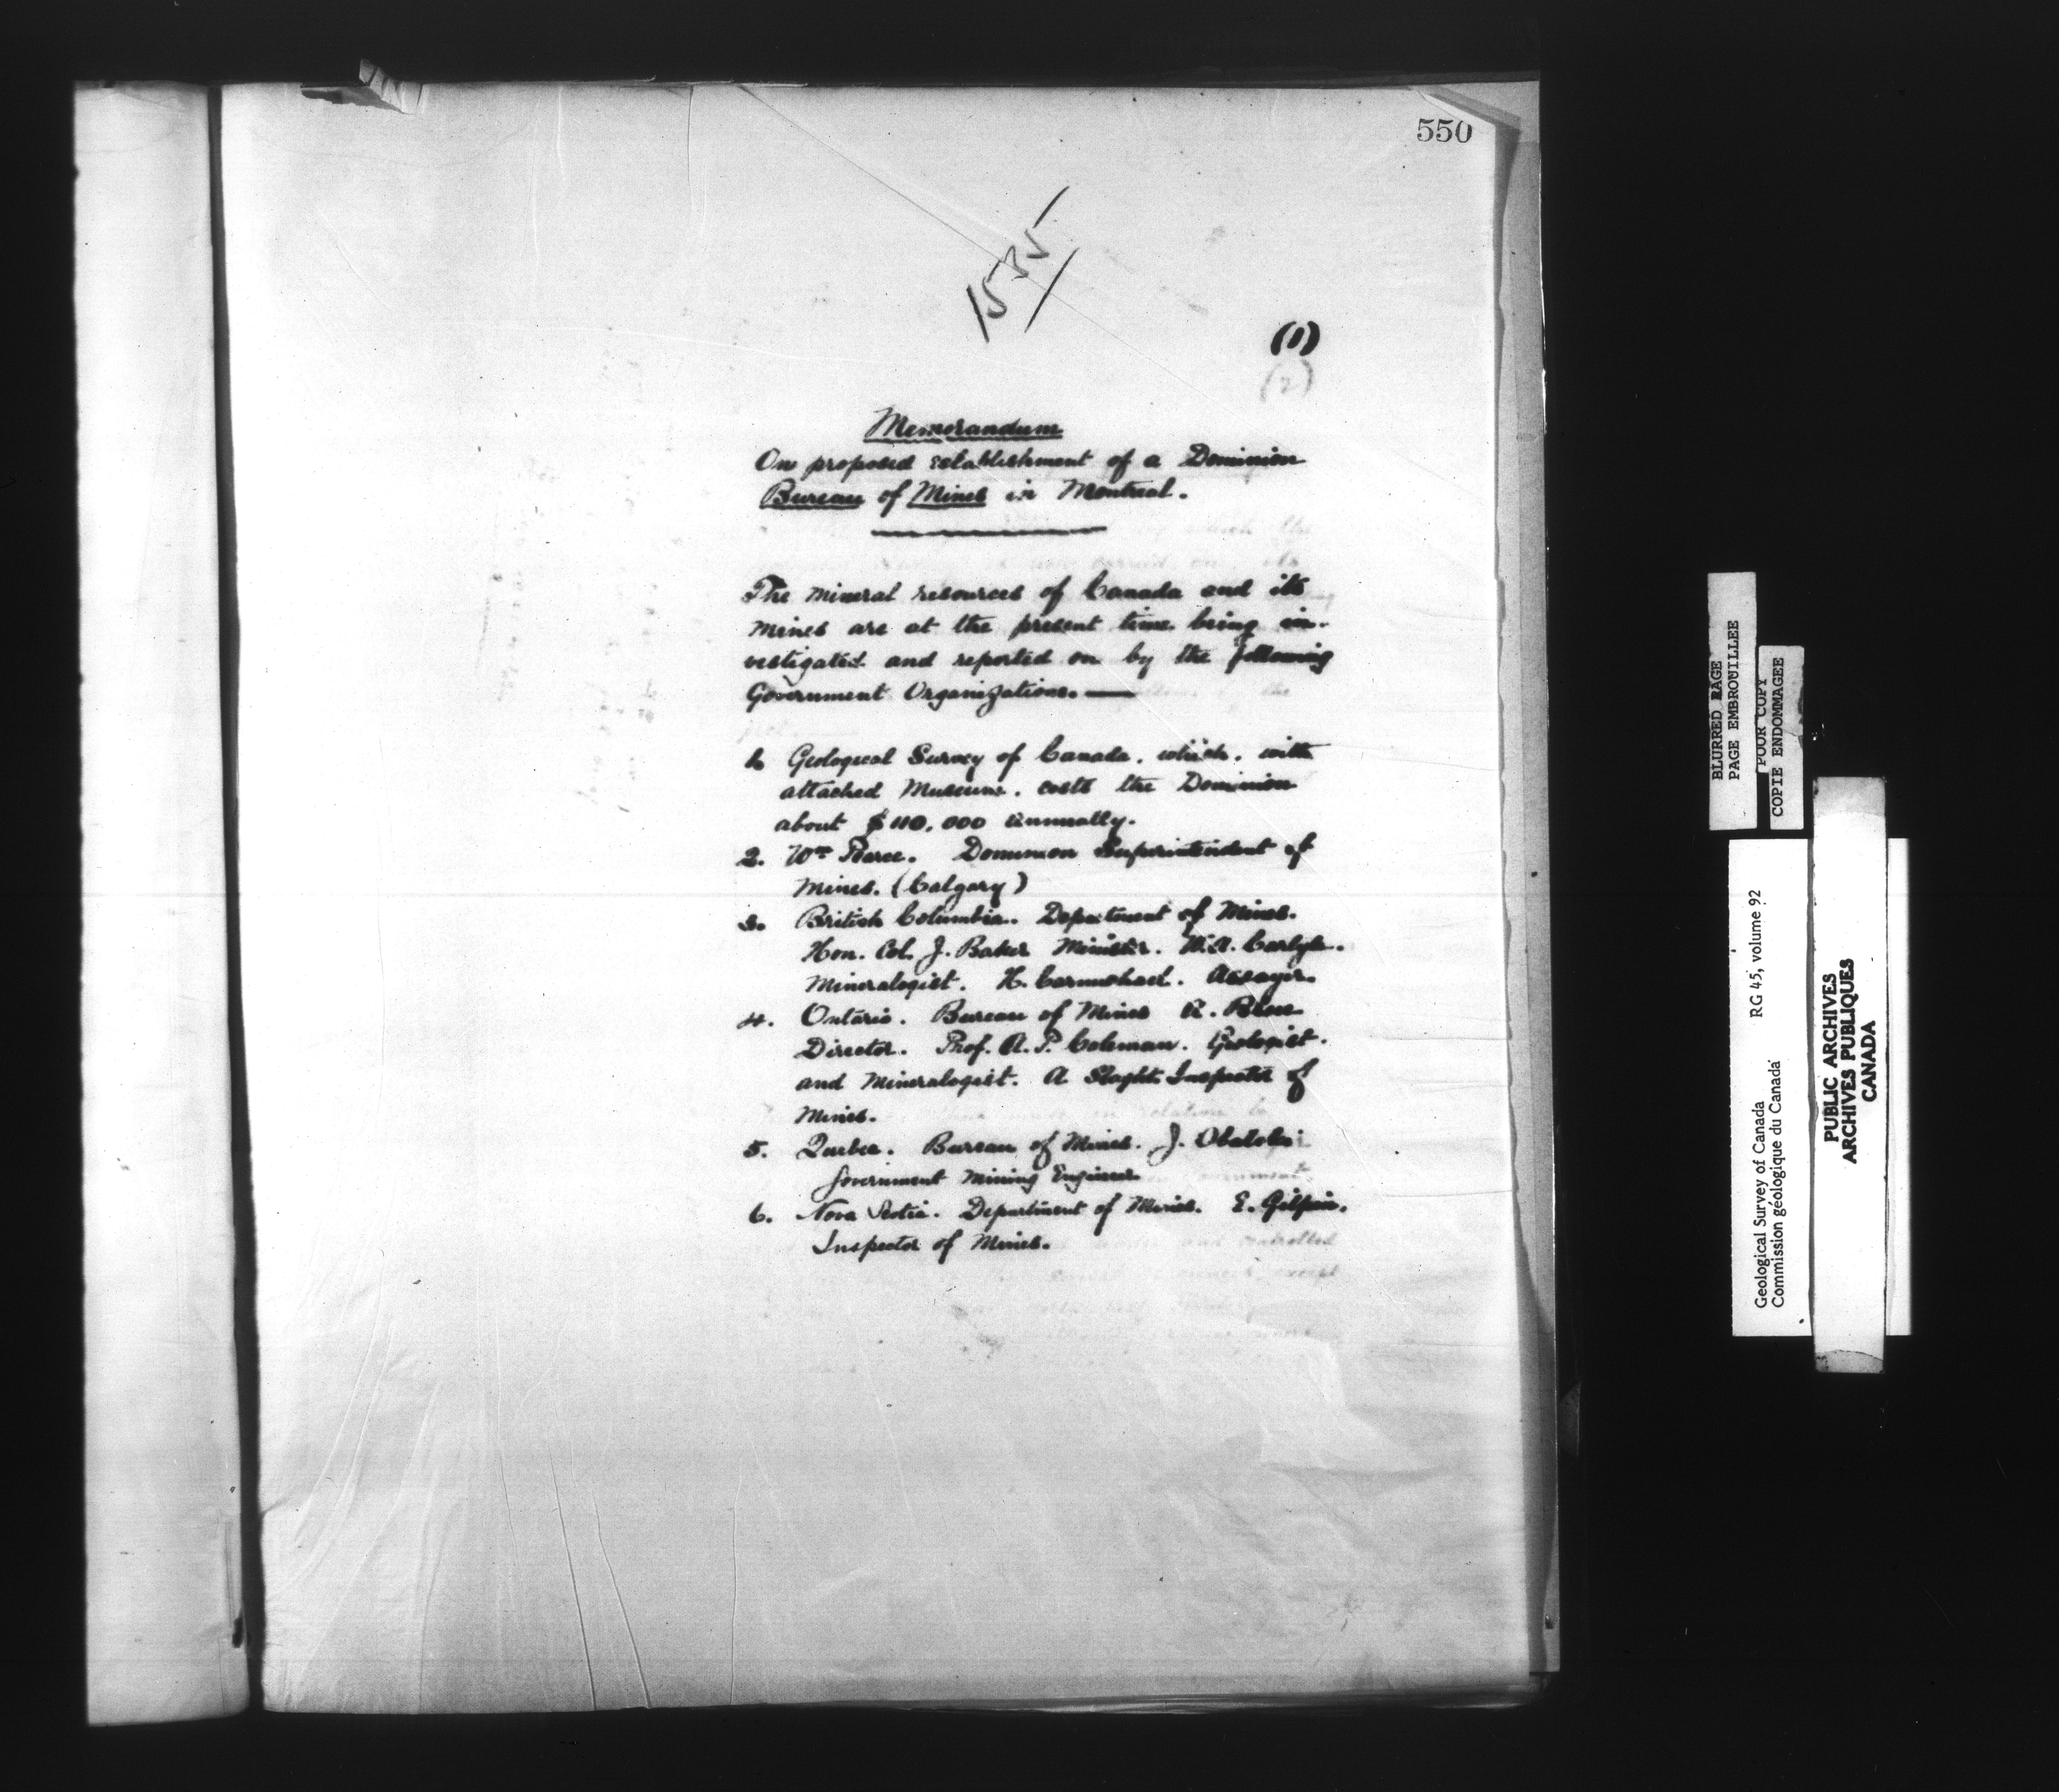 550
1535
(1)
(2)
Memorandum
On proposed establishment of a Dominion
Bureau of Mines in Montreal.
The mineral resources of Canada and its
mines are at the present time being in-
vestigated and reported on by the following
Government Organizations. —
1. Geological Survey of Canada. which. with
attached Museum. costs the Dominion
about $110,000 annually.
2. Wm Pearce. Dominion Superintendent of
Mines. (Calgary)
3. British Columbia. Department of Mines.
Hon. Col. J. Baker Minister. W.A. Carlyle.
Mineralogist. H. Carmichael. Assayer.
4. Ontario. Bureau of Mines A. Blue
Director. Prof. A. P. Coleman. Geologist.
and Mineralogist. A Slaght. Inspector of
Mines.
5. Quebec. Bureau of Mines. J. Obalski
Government Mining Engineer
6. Nova Scotia. Department of Mines. E. Gilpin.
Inspector of Mines.
BLURRED PAGE
PAGE EMBROUILLEE
POOR COPY
COPIE ENDOMMAGEE
Geological Survey of Canada RG 45, volume 92
Commission géologique du Canada
PUBLIC ARCHIVES
ARCHIVES PUBLIQUES
CANADA